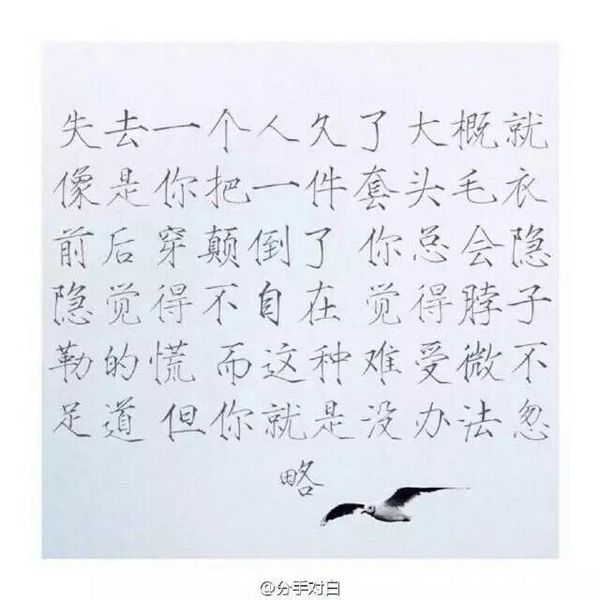 失去一个人久了大概就
像是你把一件套头毛衣
前后穿颠倒了 你总会隐
隐觉得不自在 觉得脖子
勒的慌 而这种难受微不
足道 但你就是没办法忽
略
@分手对白